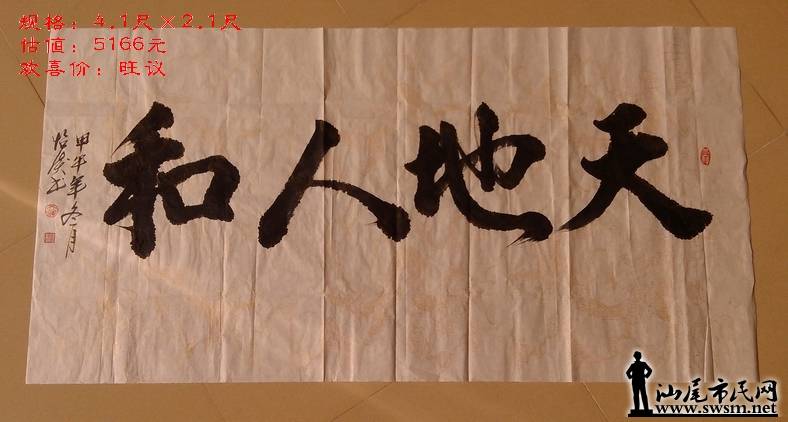 规格：4.1尺×2.1尺
估值：5166元
欢喜价：旺议
天地人和
甲午年冬月
汕尾市民网
www.swsm.net